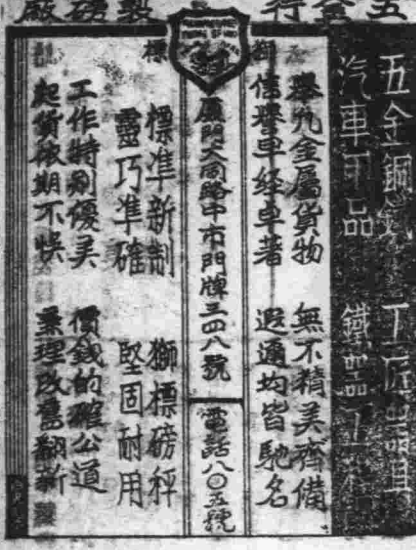 五金銅鐵 工匠器具
汽車用品 鐵器工
舉凡金屬貨物 無不精美齊備
信譽早經卓著 遐邇均皆馳名
獅
標
廈門大同路中市門牌三四八號
電話八〇五號
標準新制 獅標磅秤
靈巧準確 堅固耐用
工作特別優美 價錢的確公道
起貨依期不悮 兼理改舊翻新